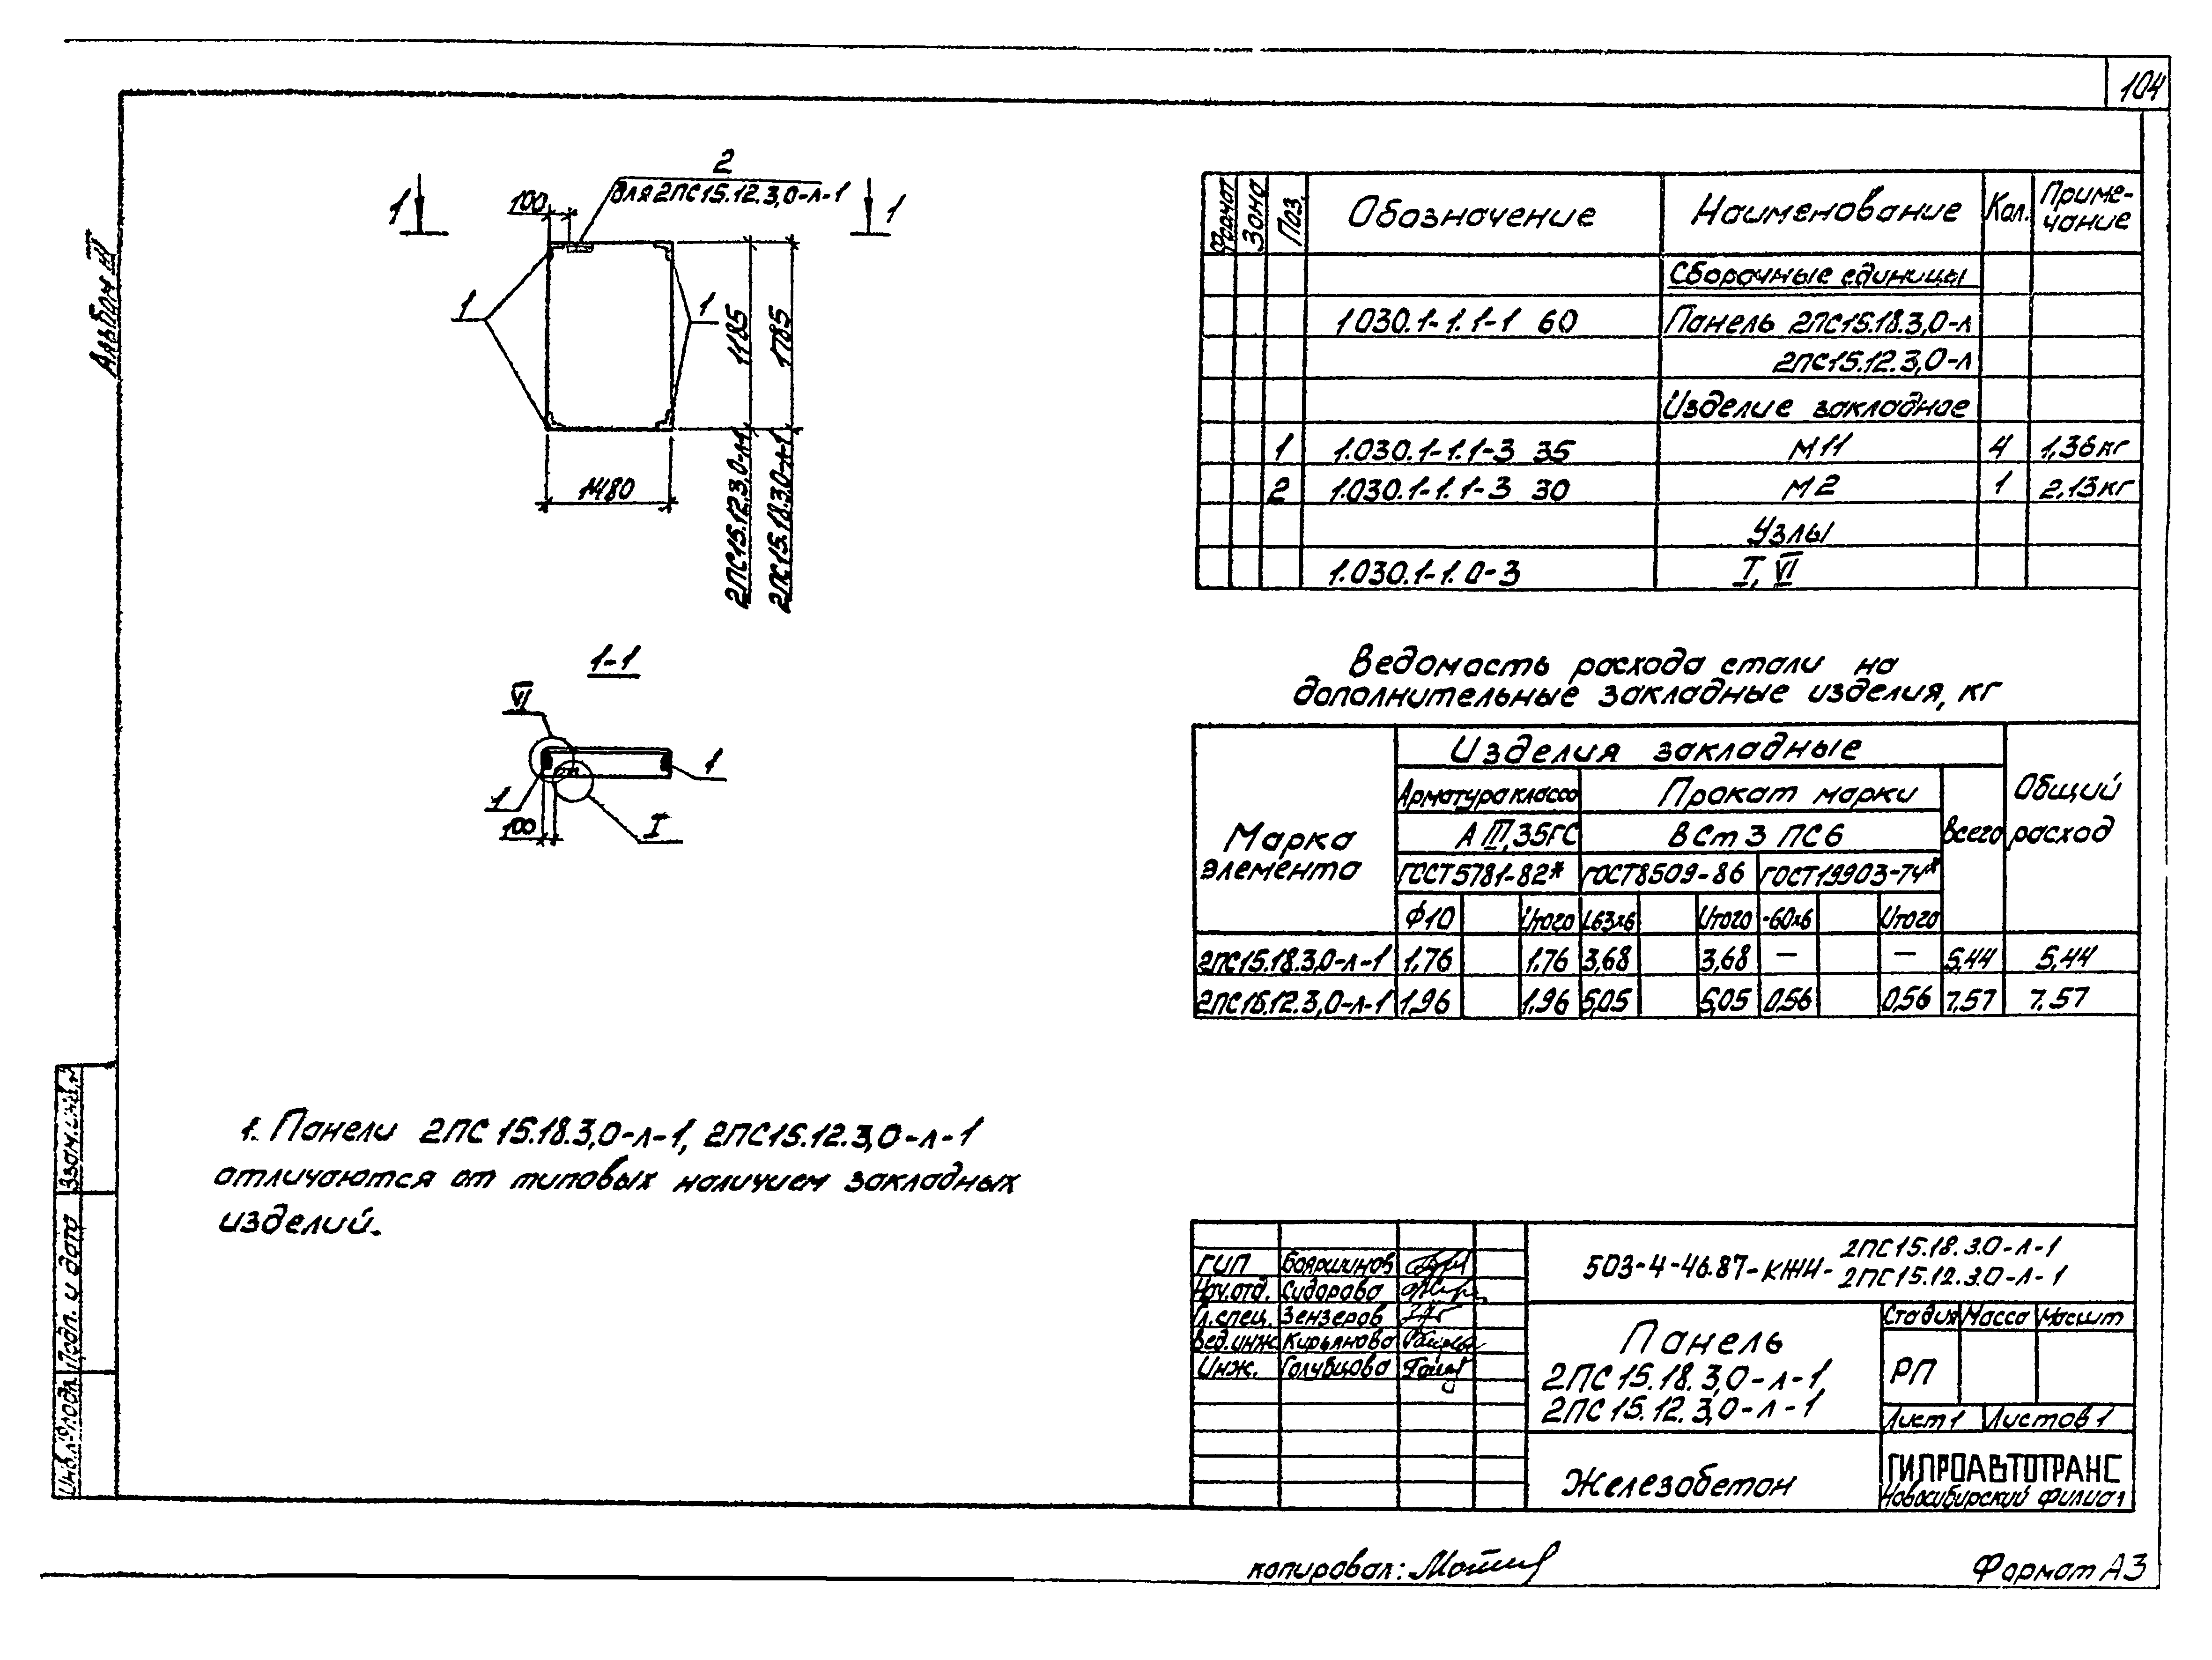 104
Альбом III
2
для 2ПС15.12.3,0-л-1
1
1
100
1
1
1185
1785
2ПС15.12.3,0-л-1
2ПС15.18.3,0-л-1
1480
1-1
VI
1
1
100
I
Формат Зона Поз. Обозначение Наименование Кол. Приме-
чание
Сборочные единицы
1.030.1-1.1-1 60 Панель 2ПС15.18.3,0-л
2ПС15.12.3,0-л
Изделие закладное
1 1.030.1-1.1-3 35 М11 4 1,36кг
2 1.030.1-1.1-3 30 М2 1 2,13кг
Узлы
1.030.1-1.0-3 I, VI
Ведомость расхода стали на
дополнительные закладные изделия, кг
Марка
элемента
Изделия закладные
Арматура класса Прокат марки
А III, 35ГС ВСт3 ПС6
Всего
Общий
расход
ГОСТ5781-82* ГОСТ8509-86 ГОСТ19903-74*
Ф10 Итого L63х6 Итого -60х6 Итого
2ПС15.18.3,0-л-1 1,76 1,76 3,68 3,68 — — 5,44 5,44
2ПС15.12.3,0-л-1 1,96 1,96 5,05 5,05 0,56 0,56 7,57 7.57
1. Панели 2ПС 15.18.3,0-л-1, 2ПС15.12.3,0-л-1
отличаются от типовых наличием закладных
изделий.
Взам.инв.№
Подп. и дата
Инв.№подл.
ГИП Бояршинов
Нач.отд. Сидорова
Гл.спец. Зензеров
Вед.инж. Кирьянова
Инж. Голубцова
503-4-46.87-КЖИ-
2ПС15.18.3.0-л-1
2ПС15.12.3.0-л-1
Панель
2ПС 15.18.3,0-л-1
2ПС 15.12.3,0-л-1
Стадия Масса Масшт
РП
Лист 1 Листов 1
Железобетон
ГИПРОАВТОТРАНС
Новосибирский филиал
копировал:
Формат А3